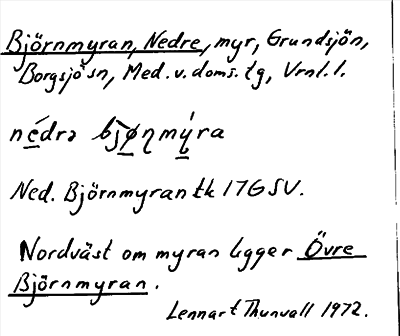 Björnmyran, Nedre, myr, Grundsjön,
Borgsjö sn, Med. v. doms. tg, Vrnl. l.
nédrə bjø̄ɳmýra
Ned. Björnmyran tk 17G SV.
Nordväst om myran ligger Övre
Björnmyran.
Lennart Thunvall 1972.